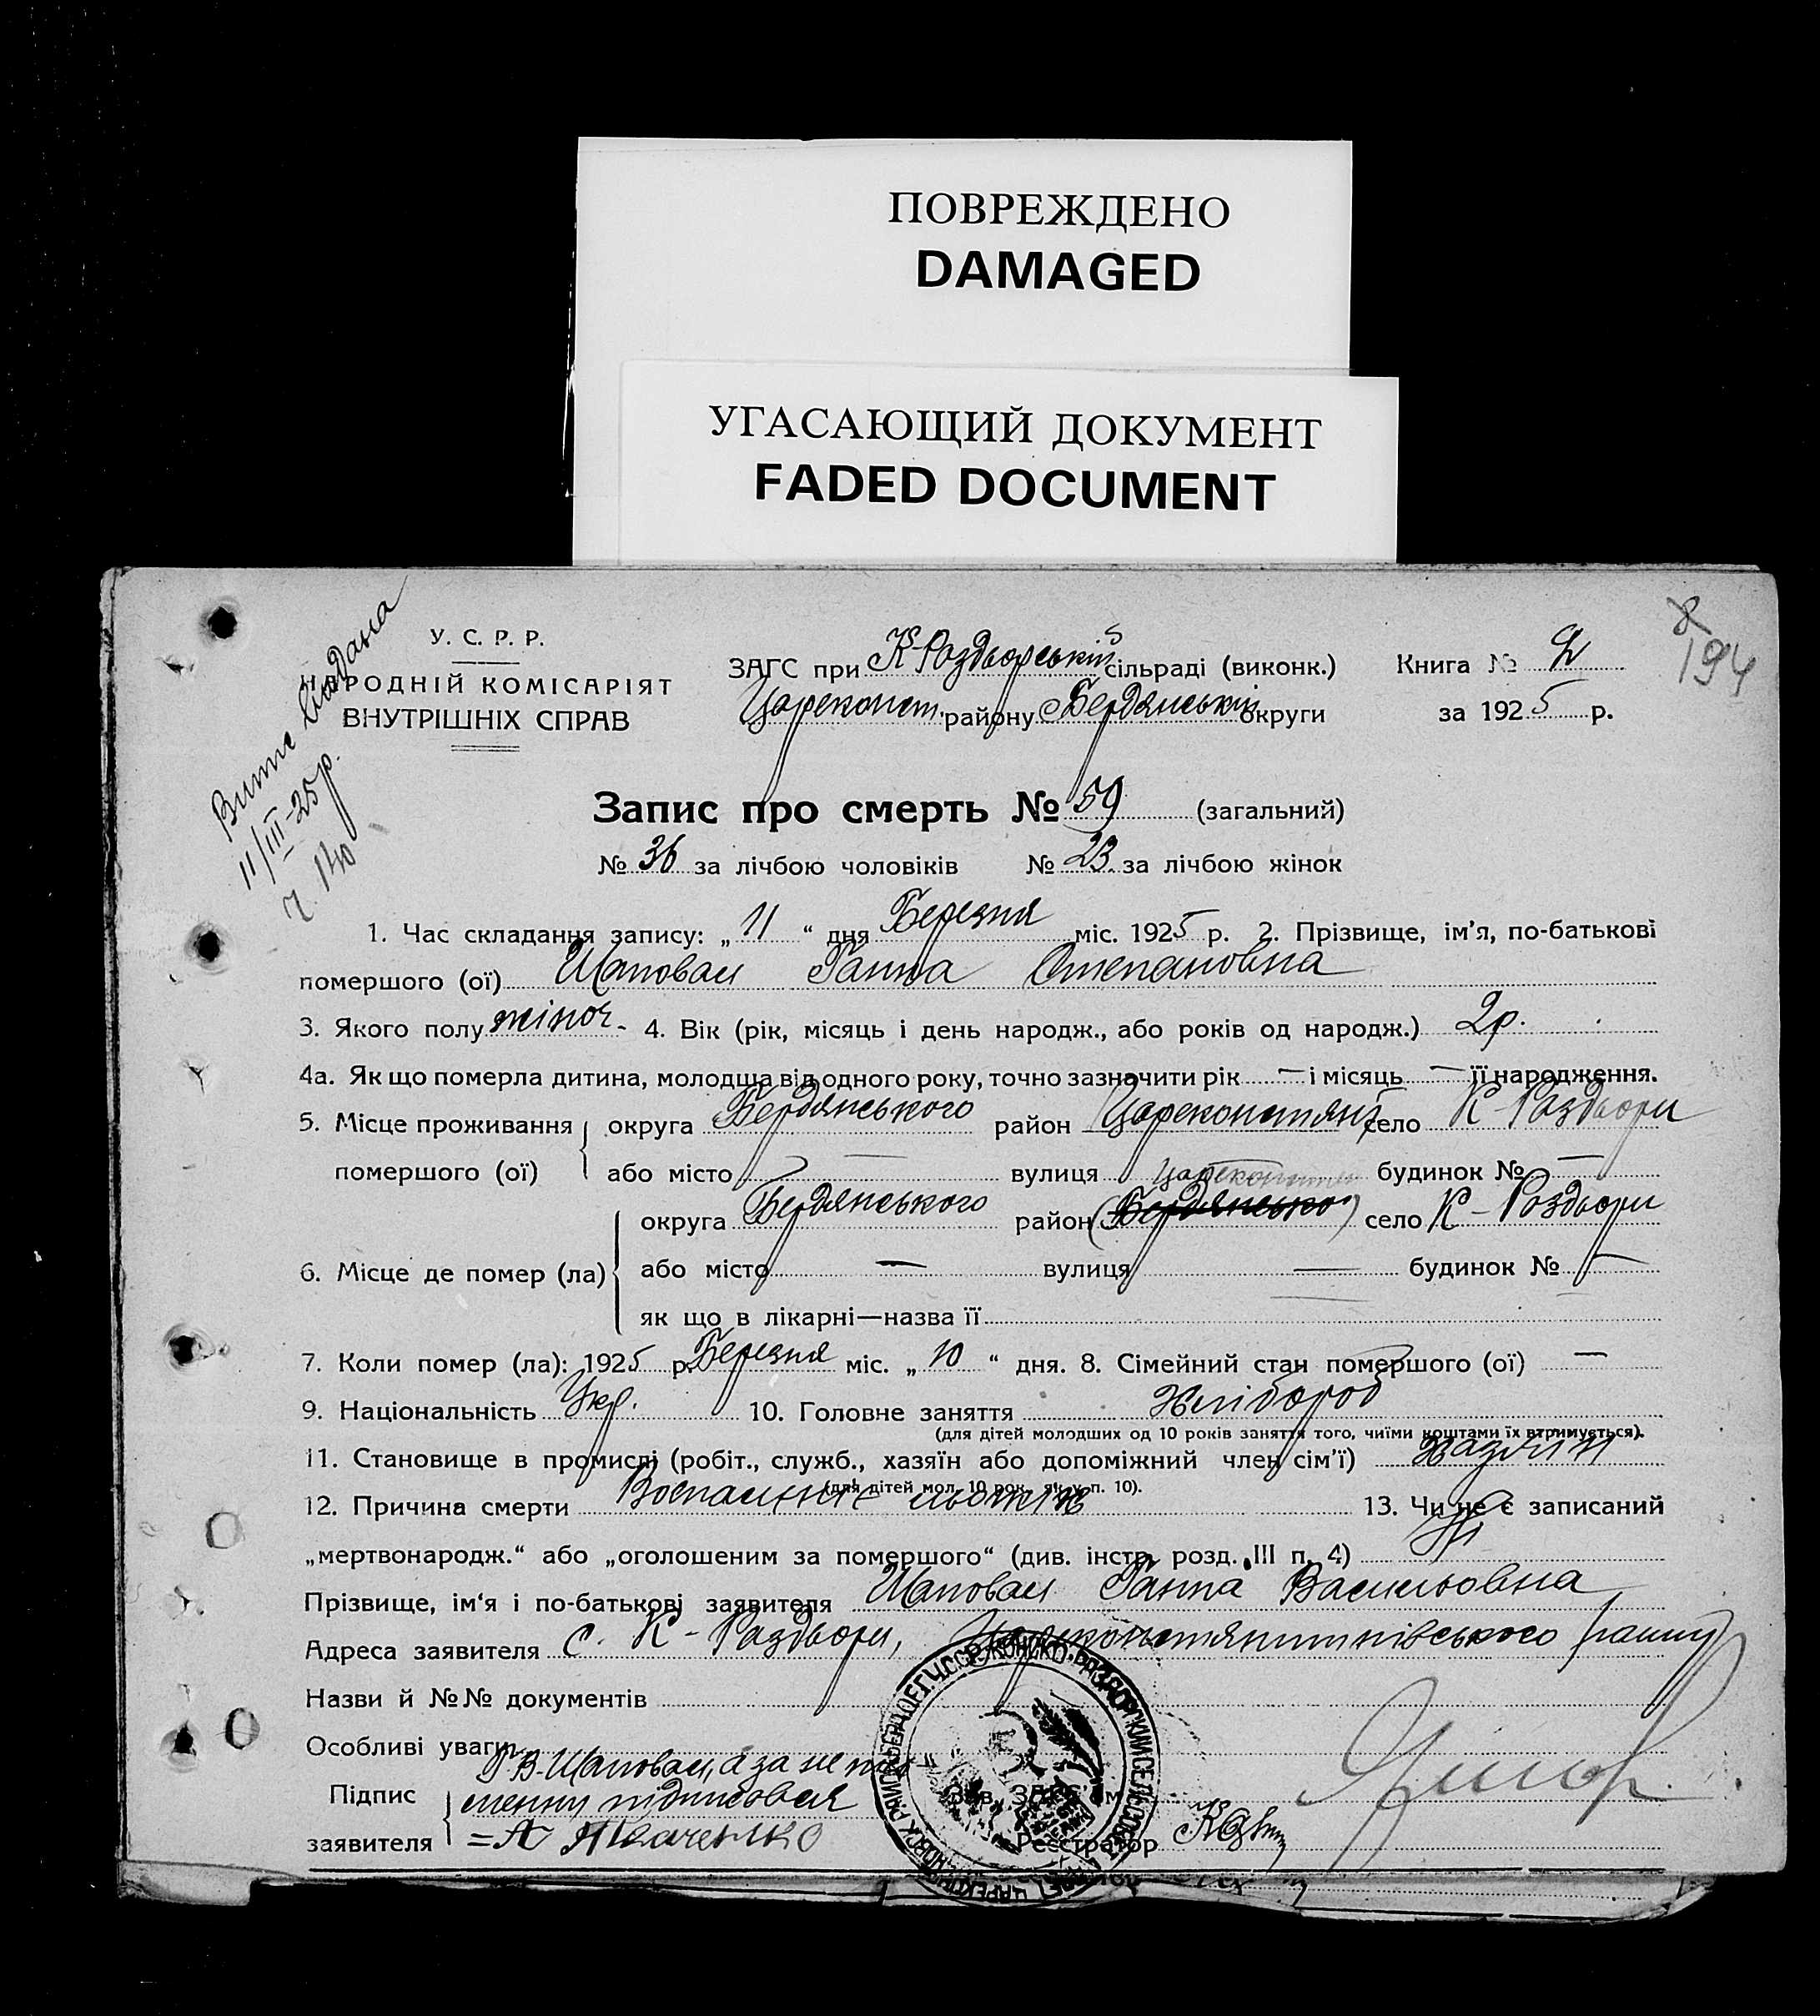 ПОВРЕЖДЕНО
DAMAGED
УГАСАЮЩИЙ ДОКУМЕНТ
FADED DOCUMENT
194
Витяг видана
11/III-25 р.
ч. 140
У. С. Р. Р.
НАРОДНІЙ КОМІСАРІЯТ
ВНУТРІШНІХ СПРАВ
ЗАГС при К-Роздворській сільраді (виконк.) Книга № 2
Цареконст. району Бердянській округи за 1925 р.
Запис про смерть № 59 (загальний)
№ 36 за лічбою чоловіків № 23 за лічбою жінок
1. Час складання запису: „11“ дня Березня міс. 1925 р. 2. Прізвище, ім'я, по-батькові
помершого (ої) Шаповал Ганна Степановна
3. Якого полу жіноч. 4. Вік (рік, місяць і день народж., або років од народж.) 2 р.
4а. Як що померла дитина, молодша від одного року, точно зазначити рік — і місяць — її народження.
5. Місце проживання округа Бердянського район Цареконстянт село К-Роздвори
помершого (ої) або місто — вулиця Цареконстян будинок № —
округа Бердянського район (Бердянсько) село К-Роздвори
6. Місце де помер (ла) або місто — вулиця — будинок № —
як що в лікарні—назва її
7. Коли помер (ла): 1925 р. Березня міс. „10“ дня. 8. Сімейний стан помершого (ої) —
9. Національність Укр. 10. Головне заняття Хлібороб
(для дітей молодших од 10 років заняття того, чиїми коштами їх втримується).
11. Становище в промислі (робіт., служб., хазяїн або допоміжний член сім'ї) хазяїн
(для дітей мол. 10 рок. як у п. 10).
12. Причина смерти Воспаління льогких 13. Чи не є записаний
„мертвонародж.“ або „оголошеним за помершого“ (див. інстр. розд. III п. 4) Ні
Прізвище, ім'я і по-батькові заявителя Шаповал Ганна Васильовна
Адреса заявителя с. К-Роздвори, Цареконстянтинівського району
Назви й №№ документів
Особливі уваги
Підпис Г. В. Шаповал, а за не пис-
менну підписався
заявителя =А Ткаченко
Зав. ЗАГС'ом
Реєстратор